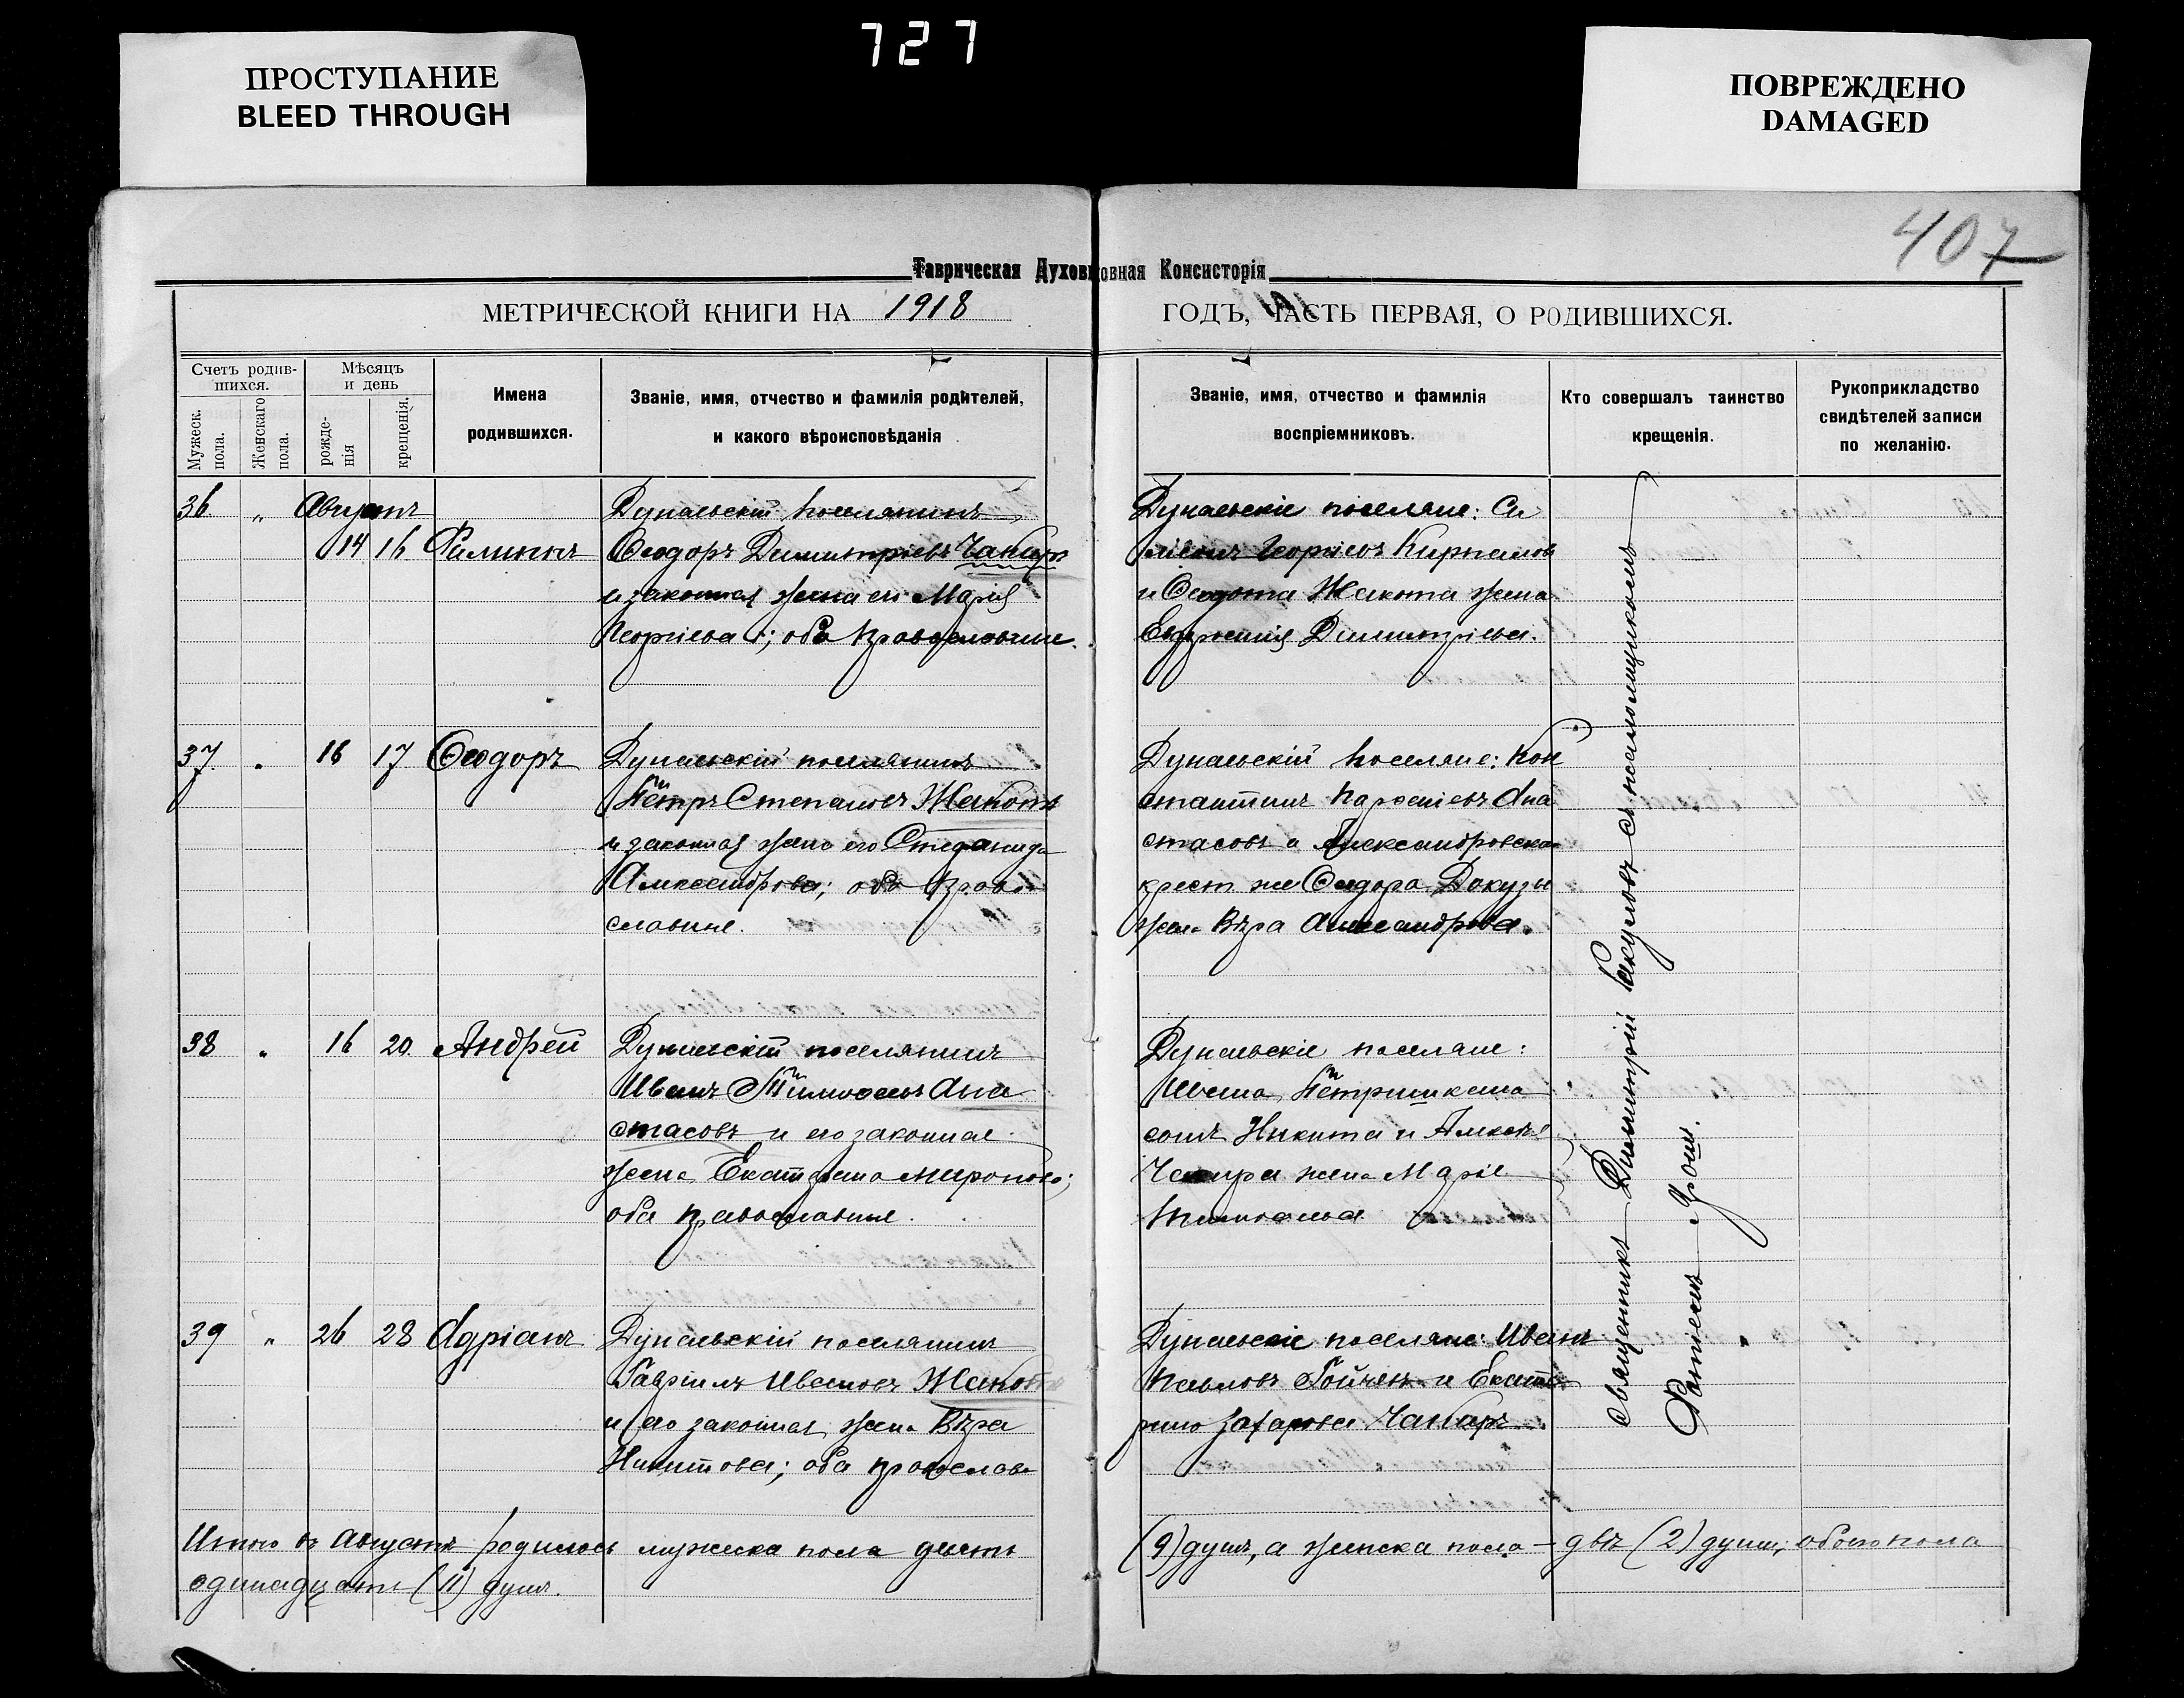 727
ПРОСТУПАНИЕ
BLEED THROUGH
ПОВРЕЖДЕНО
DAMAGED
407
Таврическая Духовная Консисторія
МЕТРИЧЕСКОЙ КНИГИ НА 1918
ГОДЪ, ЧАСТЬ ПЕРВАЯ, О РОДИВШИХСЯ.
Счетъ родив-
шихся.
Мужеск.
пола.
Женскаго
пола.
Мѣсяцъ
и день
рожде-
нія
крещенія.
Имена
родившихся.
Званіе, имя, отчество и фамилія родителей,
и какого вѣроисповѣданія
Званіе, имя, отчество и фамилія
воспріемниковъ.
Кто совершалъ таинство
крещенія.
Рукоприкладство
свидѣтелей записи
по желанію.
36 " Августъ
14 16 Филиппъ
Дунаевскій поселянинъ
Ѳеодоръ Димитріевъ
и законная жена его Марія
Георгіева; оба православные.
Дунаевскіе поселяне:
Георгіевъ
и Ѳеодота Жекота жена
Евфросинія Димитріева.
37 " 16 17 Ѳеодоръ
Дунаевскій поселянинъ
Петръ Степановъ Жекотъ
и законная жена его Стефанида
Александрова; оба право
славные.
Дунаевскій поселяне: Кон
стантинъ Парѳеніевъ Ана
стасовъ и Александровска
крест. же Ѳеодора Докузы
жена Вѣра Александрова.
38 " 16 20 Андрей
Дунаевскій поселянинъ
Иванъ Тимоѳеевъ Ана
стасовъ и его законная
жена Екатерина Миронова;
оба православные.
Дунаевскіе поселяне:
Ивана
сынъ Никита и
жена Марія
39 " 26 28 Адріанъ
Дунаевскій поселянинъ
Гавріилъ Ивановъ Жекотъ
и его законная жена Вѣра
Никитова; оба православ
Дунаевскіе поселяне: Иванъ
Павловъ и Екате
рина Захарова
Священникъ Димитрій съ псаломщикомъ
Итого въ Августѣ родилось мужеска пола девять
(9) душъ, а женска пола – двѣ (2) души, обоего пола
одинадцать (11) душъ.